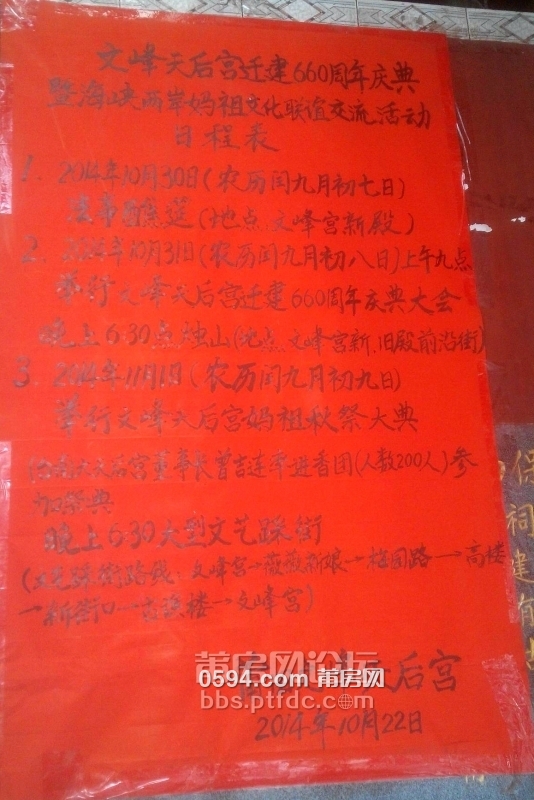 文峰天后宫迁建660周年庆典
暨海峡两岸妈祖文化联谊交流活动
日程表
1. 2014年10月30日(农历闰九月初七日)
法事 醮筵(地点 文峰宫新殿)
2. 2014年10月31日(农历闰九月初八日)上午九点
举行文峰天后宫迁建660周年庆典大会
晚上6:30点烛山(地点 文峰宫新、旧殿前沿街)
3. 2014年11月1日(农历闰九月初九日)
举行文峰天后宫妈祖秋祭大典
(台南大天后宫董事长曾吉连率进香团(人数200人)参
加祭典
晚上6:30大型文艺踩街
(文艺踩街路线:文峰宫→薇薇新娘→梅园路→高楼
→新街口→古谯楼→文峰宫)
天后宫
2014年10月22日
莆房网论坛
0594.com 莆房网
bbs.ptfdc.com
保
祠
建
有